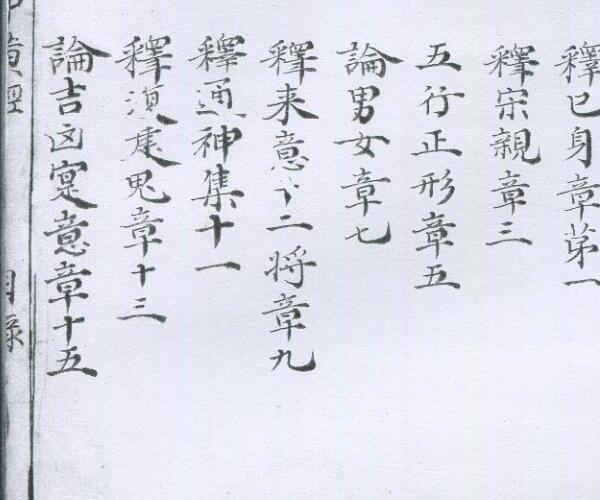 釋己身章苐一
釋宗親章三
五行正形章五
論男女章七
釋来意十二将章九
釋通神集十一
釋鬼章十三
論吉凶寔意章十五
黄經
目录